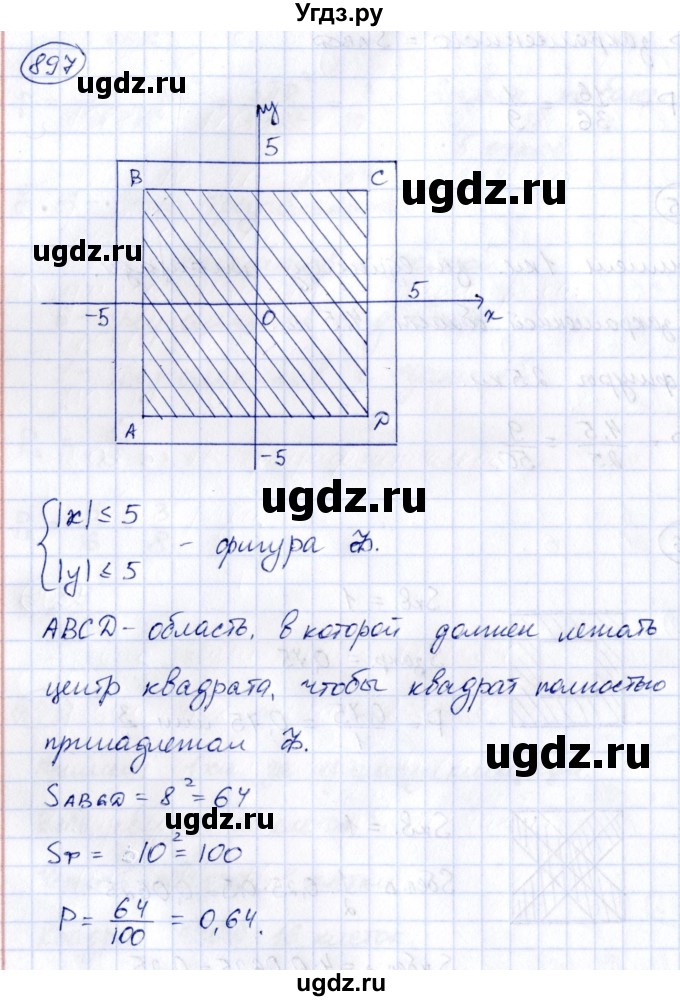 Угдз.ру
897
ugdz.ru
y
5
ugdz.ru
B
C
ugdz.ru
ugdz.ru
-5
0
5
x
A
D
-5
ugdz.ru
ugdz.ru
{|x| ≤ 5
|y| ≤ 5
- фигура Ф.
ABCD - область, в которой должен лежать
центр квадрата, чтобы квадрат полностью
принадлежал Ф.
ugdz.ru
S ABCD = 8² = 64
ugdz.ru
Sф = 10² = 100
P = 64/100 = 0,64.
ugdz.ru